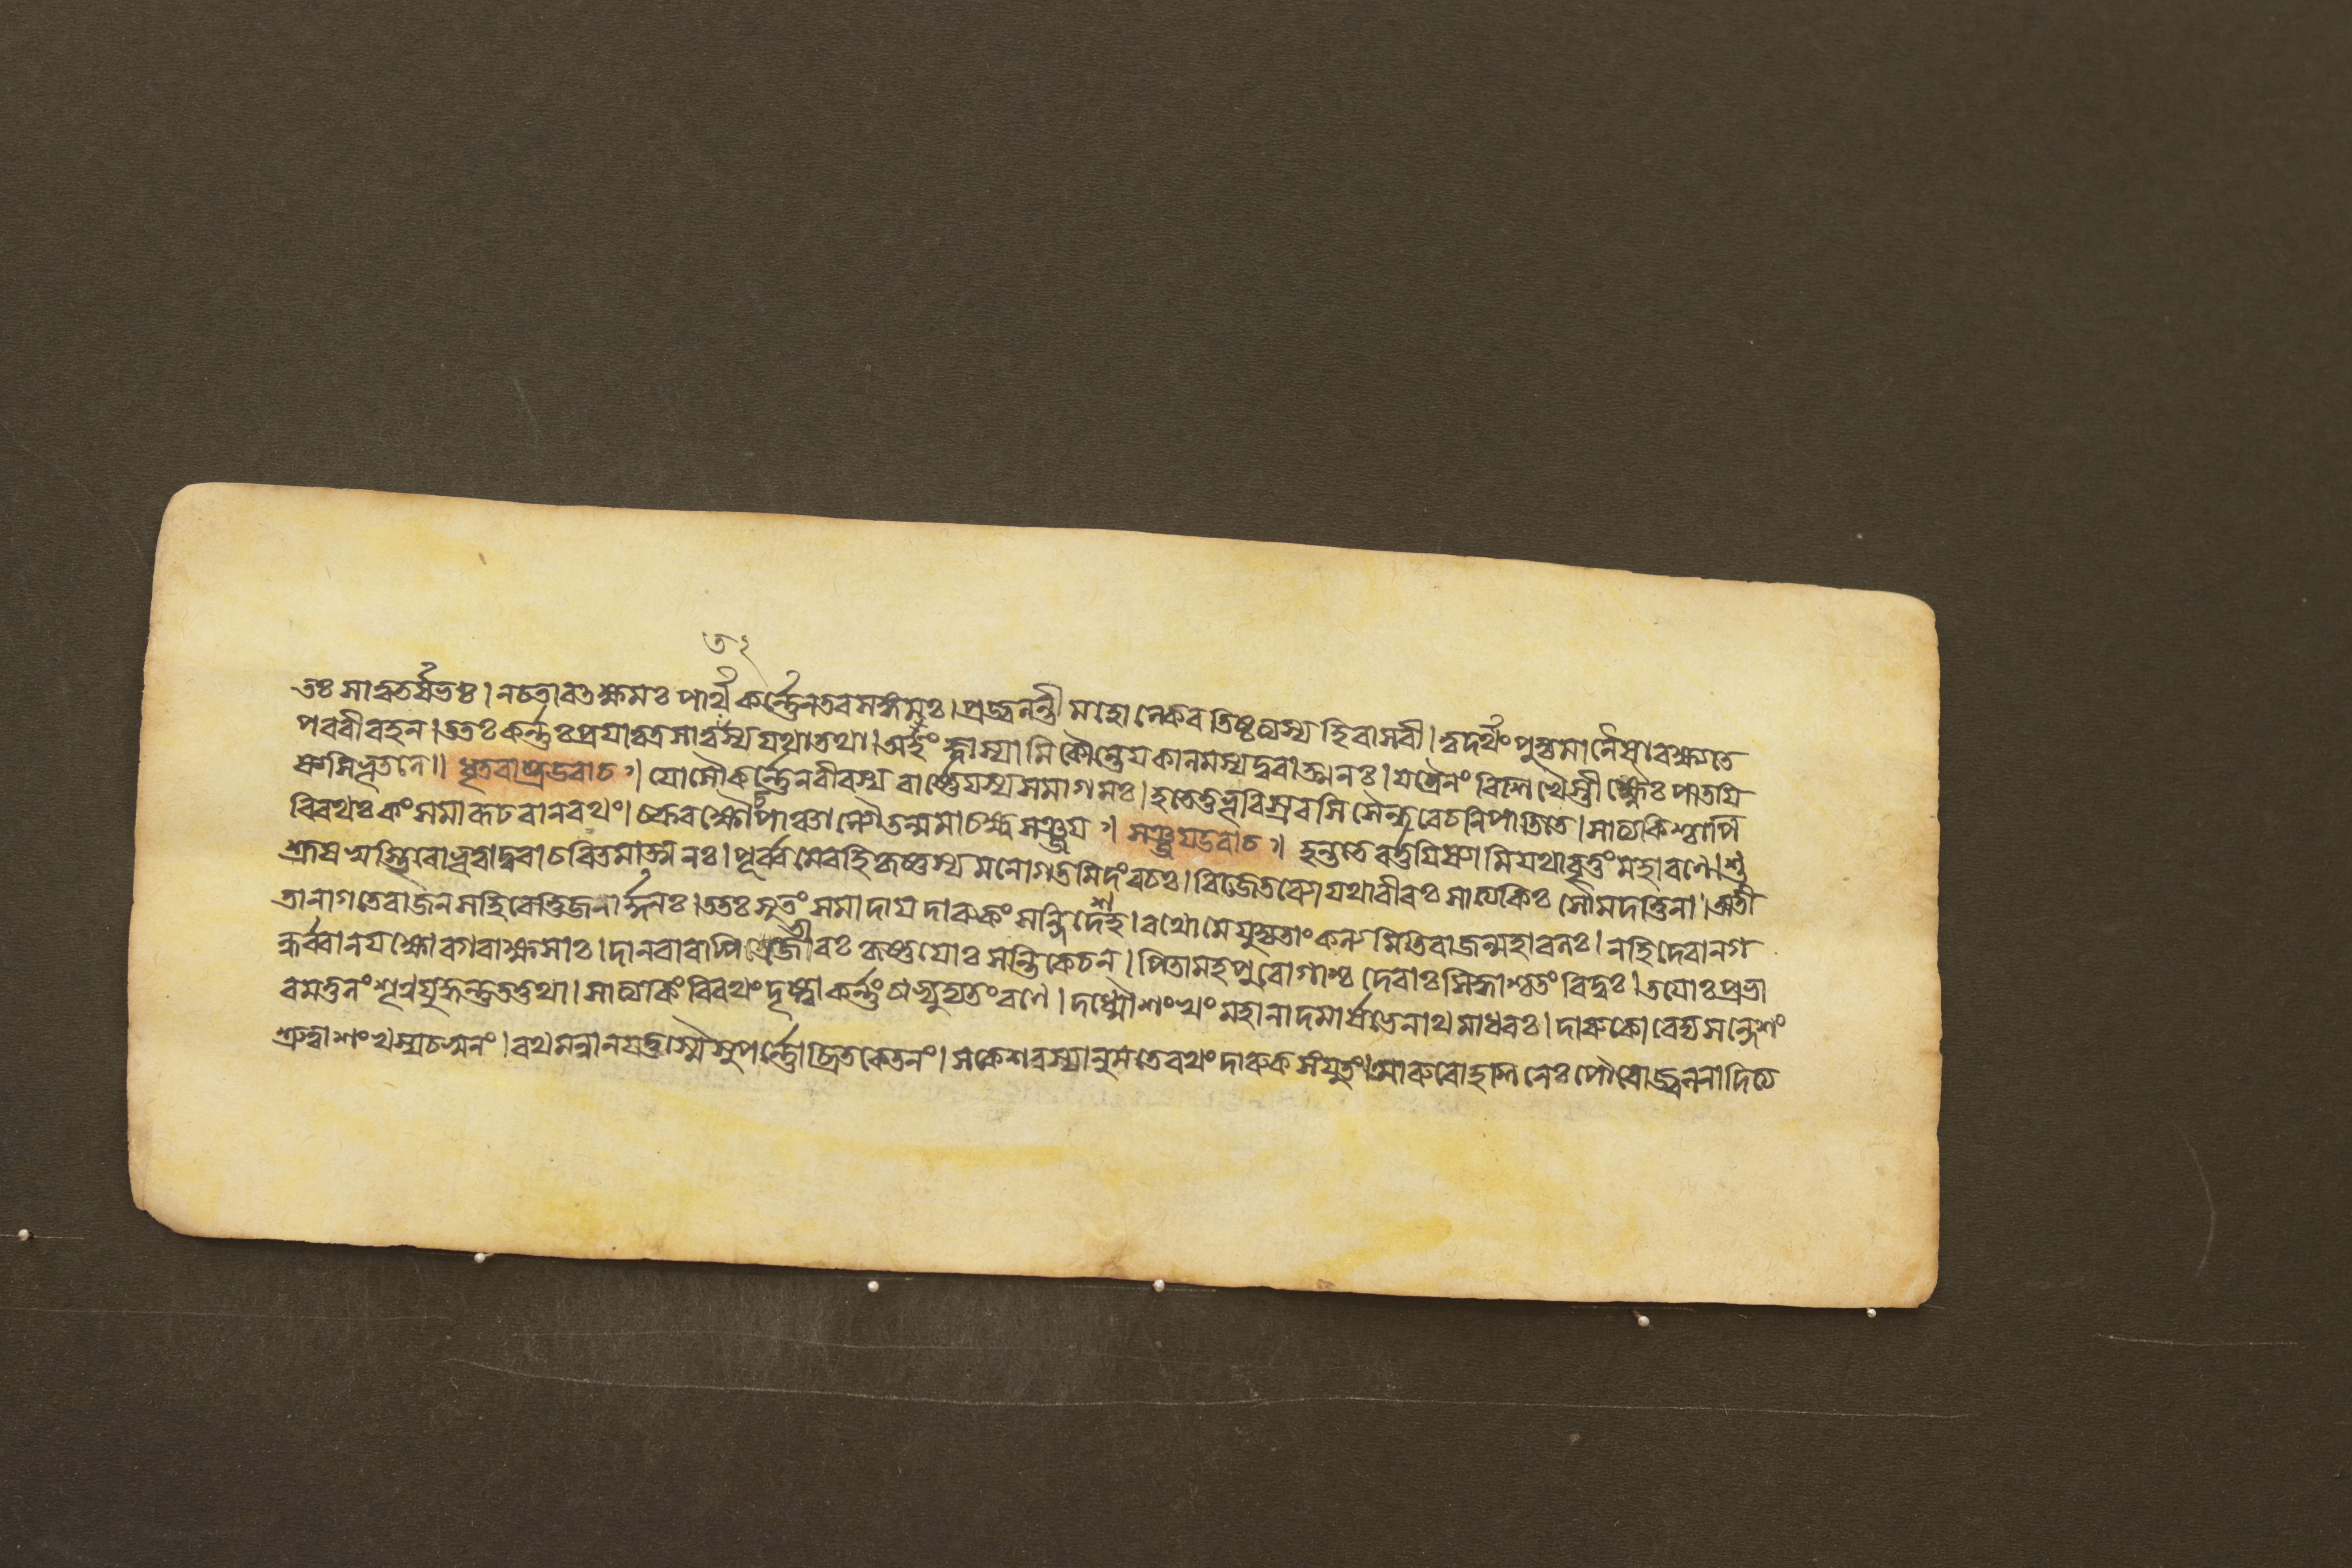 তঃ সাত্বতর্ষভঃ। ন চ তাবৎ ক্ষমঃ পার্থ কর্ণ্ণেন তব সঙ্গরঃ। প্রজ্বলন্তী মহোল্কেব তিষ্ঠত্যস্য হি বাসবী। ত্বদর্থং পূজ্যমানৈষা রক্ষ্যতে
পরবীরহন। অতঃ কর্ণ্ণঃ প্রযাত্বত্র সাত্বতস্য যথা তথা। অহং জ্ঞাস্যামি কৌন্তেয কালমস্য দুরাত্মনঃ। যত্রৈনং বিশিখৈস্তীক্ষ্ণৈঃ পাতযি
ষ্যামি ভূতলে॥ ধৃতরাষ্ট্র উবাচ। যোসৌ কর্ণ্ণেন বীরস্য বার্ষ্ণেযস্য সমাগমঃ। হতে তু ভূরিশ্রবসি সৈন্ধবে চ নিপাতিতে। সাত্যকিশ্চাপি
বিরথঃ কং সমারূঢবান রথং। চক্ররক্ষৌ চ পাঞ্চাল্যৌ তন্মমাচক্ষ্ব সঞ্জয। সঞ্জয উবাচ। হন্ত তে বর্ত্তযিষ্যামি যথাবৃত্তং মহারণে। শু
শ্রূষস্ব স্থিরো ভূত্বা দুরাচরিতমাত্মনঃ। পূর্ব্বমেব হি কৃষ্ণস্য মনোগতমিদং বচঃ। বিজেতব্যো যথা বীরঃ সাত্যকিঃ সৌমদত্তিনা। অতী
তানাগতে রাজন স হি বেত্তি জনার্দ্দনঃ। ততঃ সূতং সমাদায দারুকং সন্দিদেশ হ। রথো মে যুজ্যতাং কল্যমিতি রাজন্মহাবলঃ। ন হি দেবা ন গ
ন্ধর্ব্বা ন যক্ষোরগরাক্ষসাঃ। দানবা বাপি জেতারঃ কৃষ্ণযোঃ সন্তি কেচন। পিতামহপুরোগাশ্চ দেবাঃ সিদ্ধাশ্চ তং বিদুঃ। তযোঃ প্রভা
বমতুলং শৃণু যুদ্ধন্তু তত্তথা। সাত্যকিং বিরথং দৃষ্ট্বা কর্ণ্ণং চাভ্যুদ্যতং রণে। দধ্মৌ শংখং মহানাদমার্ষভেনাথ মাধবঃ। দারুকো বেদ্য সন্দেশং
শ্রুত্বা শংখস্য চ স্বনং। রথমন্বানযত্তস্মৈ সুপর্ণ্ণোচ্ছ্রিতকেতনং। স কেশবস্যানুমতে রথং দারুকসংযুতং। আরুরোহ শিনেঃ পৌত্রো জ্বলনাদিত্য